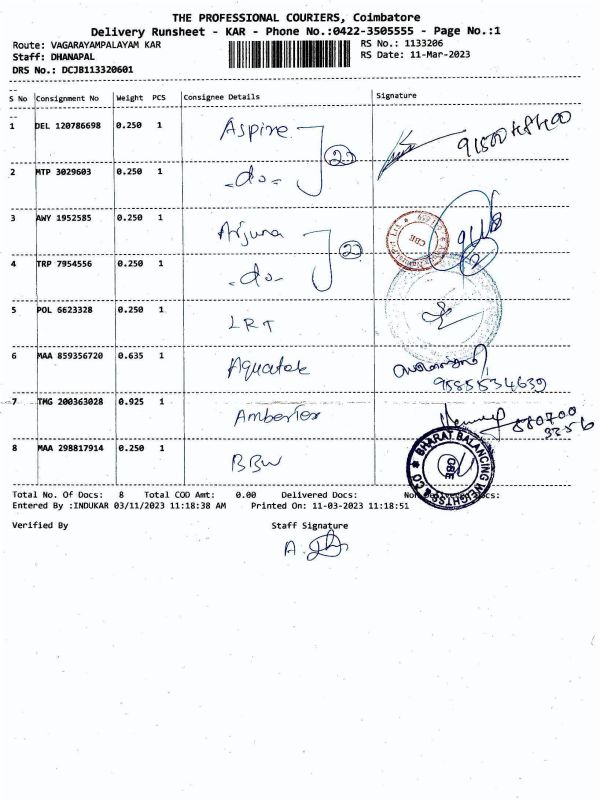 THE PROFESSIONAL COURIERS, Coimbatore
Delivery Runsheet - KAR - Phone No.:0422-3505555 - Page No.:1
Route: VAGARAYAMPALAYAM KAR
RS No.: 1133206
Staff: DHANAPAL
RS Date: 11-Mar-2023
DRS No.: DCJB113320601
S No Consignment No Weight PCS Consignee Details Signature
1 DEL 120786698 0.250 1 Aspire
2 MTP 3029603 0.250 1 -do-
3 AWY 1952585 0.250 1 Arjuna
4 TRP 7954556 0.250 1 -do-
5 POL 6623328 0.250 1 LRT
6 MAA 859356720 0.635 1 Aquatek
9585534639
7 TMG 200363028 0.925 1 Ambertex
8 MAA 298817914 0.250 1 BBW
BHARAT BALANCING WEIGHTSS & CO
CBE
Total No. Of Docs: 8 Total COD Amt: 0.00 Delivered Docs:
Entered By :INDUKAR 03/11/2023 11:18:38 AM Printed On: 11-03-2023 11:18:51
Verified By Staff Signature